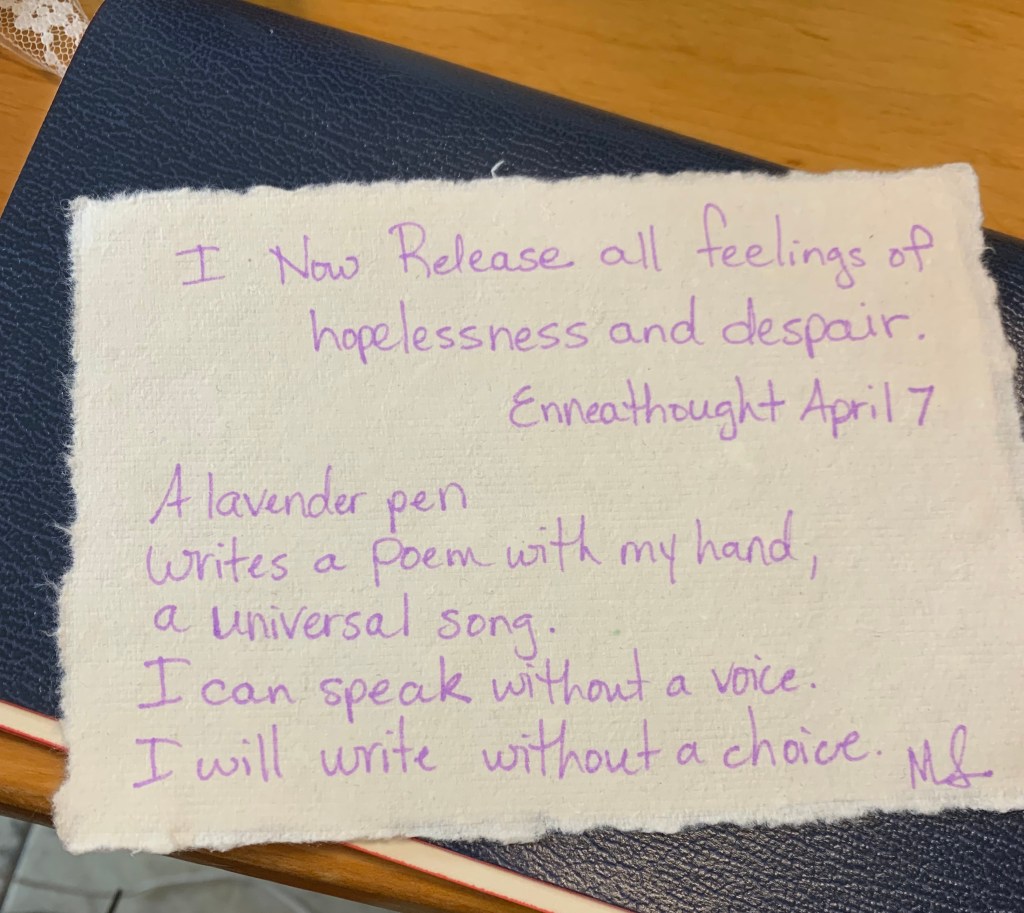 I Now Release all feelings of
hopelessness and despair.
Enneathought April 7
A lavender pen
writes a poem with my hand,
a universal song.
I can speak without a voice.
I will write without a choice. MS